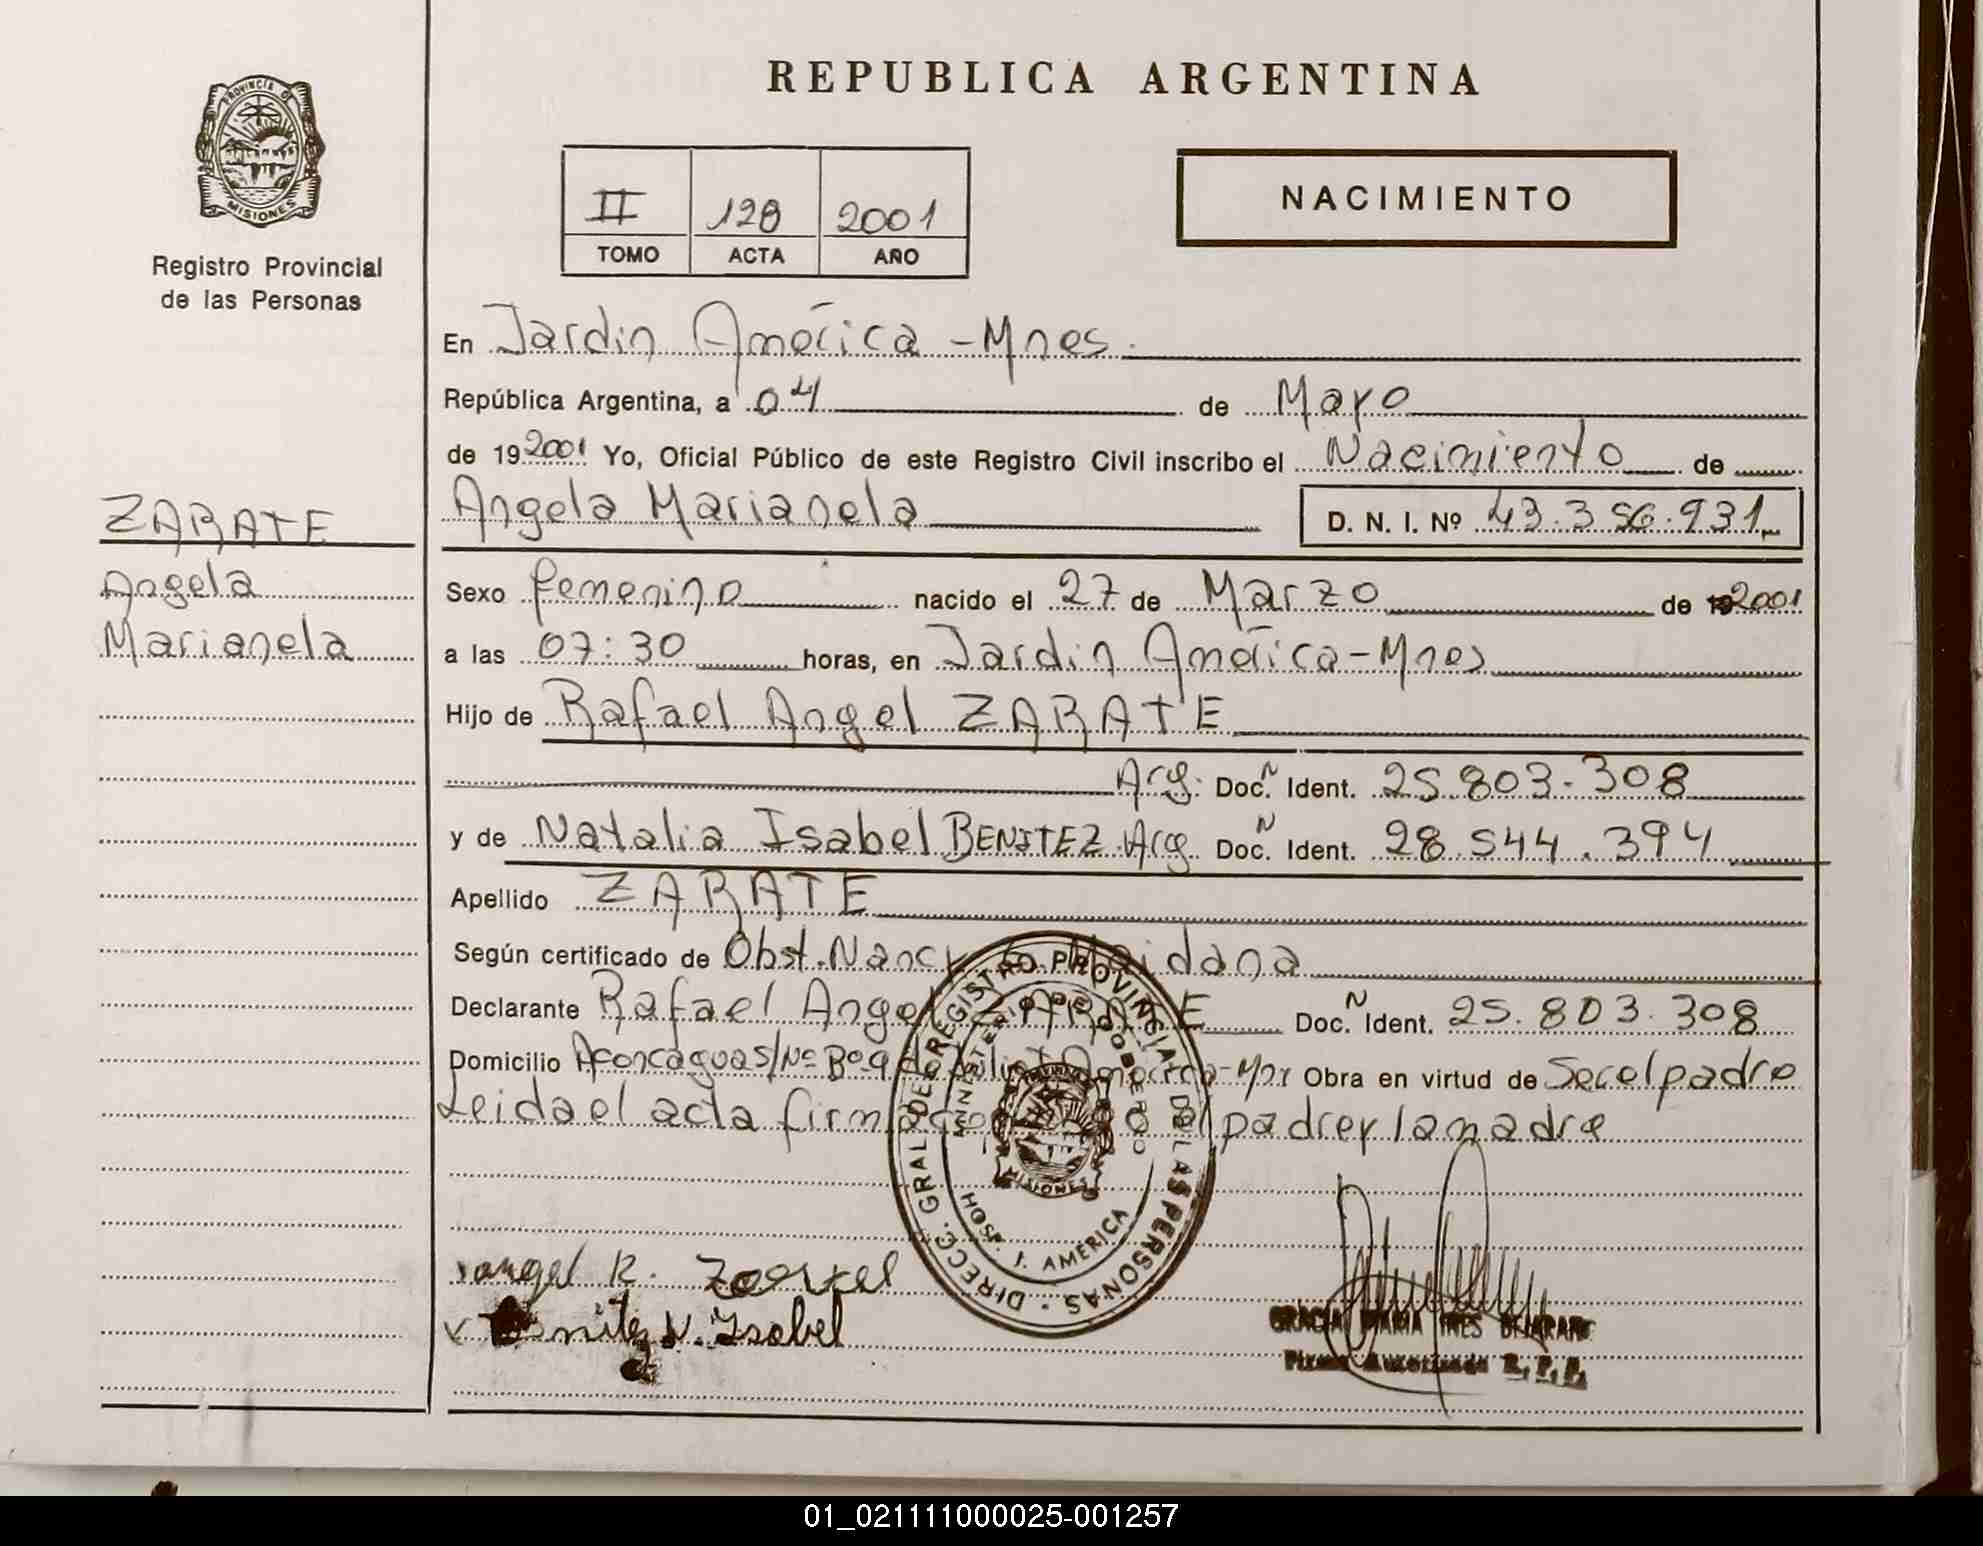 REPUBLICA ARGENTINA
PROVINCIA DE
MISIONES
Registro Provincial
de las Personas
II 128 2001
TOMO ACTA AÑO
NACIMIENTO
En Jardin América - Mnes.
República Argentina, a 04 de Mayo
de 19 2001 Yo, Oficial Público de este Registro Civil inscribo el Nacimiento de
Angela Marianela D. N. I. Nº 43.356.931
ZARATE
Angela
Marianela
Sexo femenino nacido el 27 de Marzo de 2001
a las 07:30 horas, en Jardin América - Mnes
Hijo de Rafael Angel ZARATE
Arg. Doc. N Ident. 25.803.308
y de Natalia Isabel BENITEZ Arg. Doc. N Ident. 28.544.394
Apellido ZARATE
Según certificado de Obst. Nancy Maidana
Declarante Rafael Angel ZARATE Doc. N Ident. 25.803.308
Domicilio Aconcagua S/Nº Bº 9 de Julio J. América - Mnes Obra en virtud de Ser el padre
Leida el acta firman el padre y la madre
DIRECC. GRAL DE REGISTRO PROVINCIAL DE LAS PERSONAS
MINISTERIO DE GOBIERNO
PROVINCIA
MISIONES
HOSP. J. AMERICA
angel R.
Benitez N. Isabel
GRACIA MARIA INES BEJARANO
Firma Autorizada R. P. P.
01_021111000025-001257